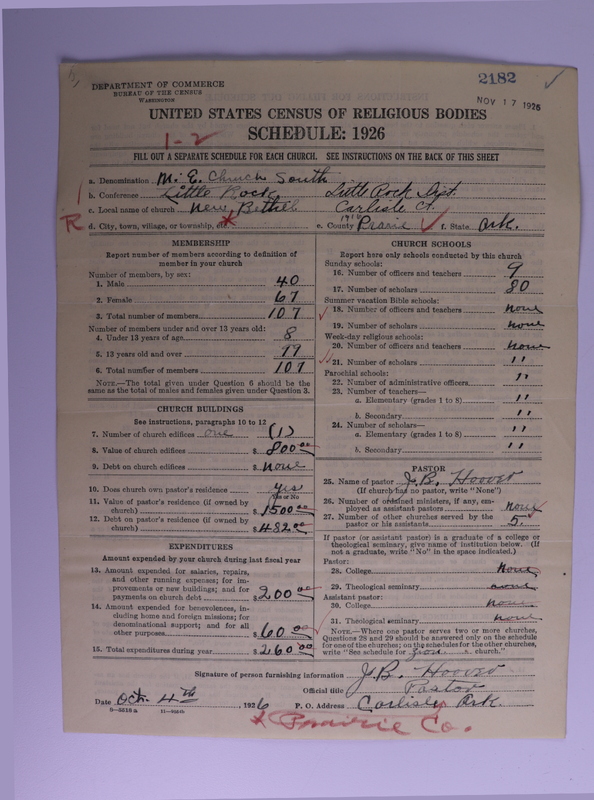 2182
DEPARTMENT OF COMMERCE
BUREAU OF THE CENSUS
WASHINGTON
NOV 17 1926
UNITED STATES CENSUS OF RELIGIOUS BODIES
SCHEDULE: 1926
1-2
FILL OUT A SEPARATE SCHEDULE FOR EACH CHURCH. SEE INSTRUCTIONS ON THE BACK OF THIS SHEET
a. Denomination M. E. Church South
b. Conference Little Rock Little Rock Dist.
c. Local name of church New Bethel Carlisle Ct.
R d. City, town, village, or township, etc. e. County Prairie f. State Ark.
MEMBERSHIP
Report number of members according to definition of member in your church
Number of members, by sex:
1. Male 40
2. Female 67
3. Total number of members 107
Number of members under and over 13 years old:
4. Under 13 years of age 8
5. 13 years old and over 99
6. Total number of members 107
NOTE.—The total given under Question 6 should be the same as the total of males and females given under Question 3.
CHURCH BUILDINGS
See instructions, paragraphs 10 to 12
7. Number of church edifices one (1)
8. Value of church edifices $ 800.00
9. Debt on church edifices $ none
10. Does church own pastor's residence yes
Yes or No
11. Value of pastor's residence (if owned by church) $ 1500.00
12. Debt on pastor's residence (if owned by church) $ 482.00
EXPENDITURES
Amount expended by your church during last fiscal year
13. Amount expended for salaries, repairs, and other running expenses; for improvements or new buildings; and for payments on church debt $ 200.00
14. Amount expended for benevolences, including home and foreign missions; for denominational support; and for all other purposes $ 60.00
15. Total expenditures during year $ 260.00
CHURCH SCHOOLS
Report here only schools conducted by this church
Sunday schools:
16. Number of officers and teachers 9
17. Number of scholars 80
Summer vacation Bible schools:
18. Number of officers and teachers none
19. Number of scholars none
Week-day religious schools:
20. Number of officers and teachers none
21. Number of scholars "
Parochial schools:
22. Number of administrative officers "
23. Number of teachers—
a. Elementary (grades 1 to 8) "
b. Secondary "
24. Number of scholars—
a. Elementary (grades 1 to 8) "
b. Secondary "
PASTOR
25. Name of pastor J. B. Hoover
(If church has no pastor, write "None")
26. Number of ordained ministers, if any, employed as assistant pastors none
27. Number of other churches served by the pastor or his assistants 5.
If pastor (or assistant pastor) is a graduate of a college or theological seminary, give name of institution below. (If not a graduate, write "No" in the space indicated.)
Pastor:
28. College None
29. Theological seminary none
Assistant pastor:
30. College None
31. Theological seminary none
NOTE.—Where one pastor serves two or more churches, Questions 28 and 29 should be answered only on the schedule for one of the churches; on the schedules for the other churches, write "See schedule for Zion church."
Signature of person furnishing information J. B. Hoover
Official title Pastor
Date Oct. 4th, 1926 P. O. Address Carlisle Ark.
8—5518 a
* Prairie Co.